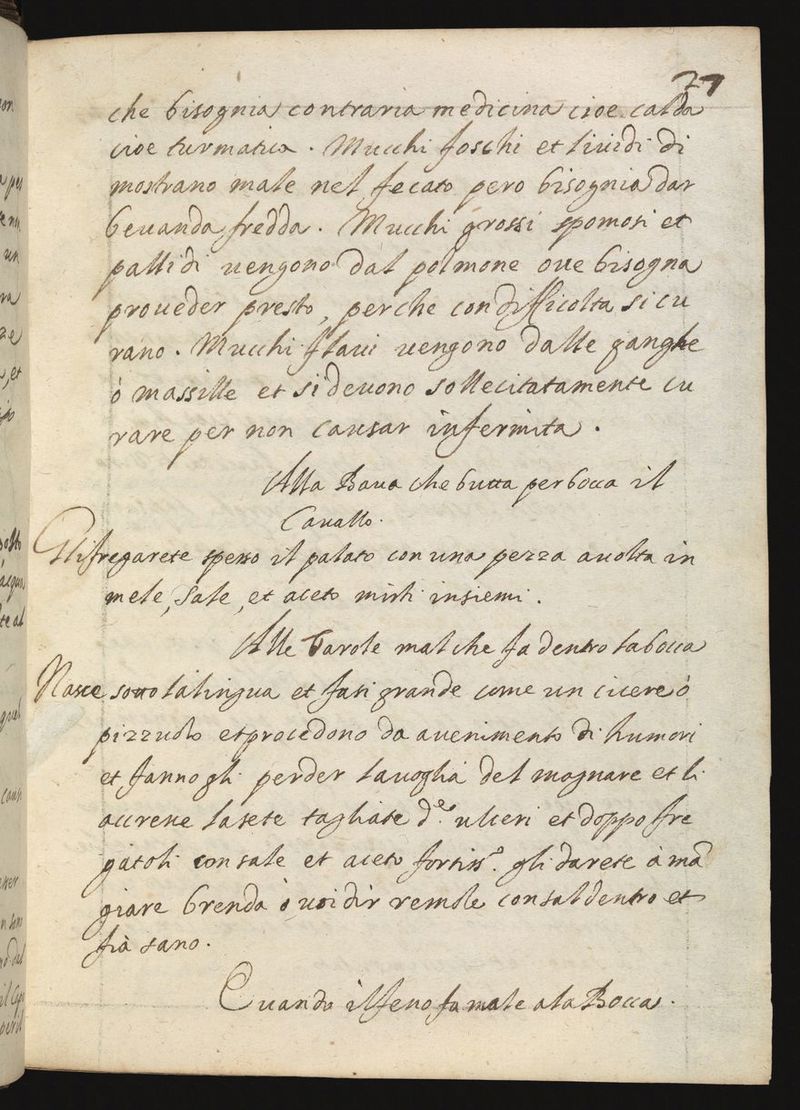 77
che bisognia contraria medicina cioe calda
cioe turmatica. Mucchi foschi et liuidi di
mostrano male nel fecato pero bisognia dar
beuanda fredda. Mucchi grossi spomosi et
pallidi uengono dal polmone oue bisogna
proueder presto, perche con difficolta si cu
rano. Mucchi flaui uengono dalle ganghe
ò massille et si deuono sollecitatamente cu
rare per non causar infermita.
Alla Baua che butta per bocca il
Cauallo.
Gli fregarete spesso il palato con una pezza auolta in
mele, sale, et aceto misti insiemi.
Alle Barole mal che fa dentro la bocca
Nasce sotto la lingua et fasi grande come un cicere ò
pizzuolo et procedono da auenimento di humori
et fanno gli perder la uoglia del magnare et li
accresce la sete tagliate d.e ulceri et doppo fre
gatoli con sale et aceto fortiss.o gli darete à mā
giare brenda ò uoi dir remole con sal dentro et
fia sano.
Cuando il feno fa male a la Bocca.